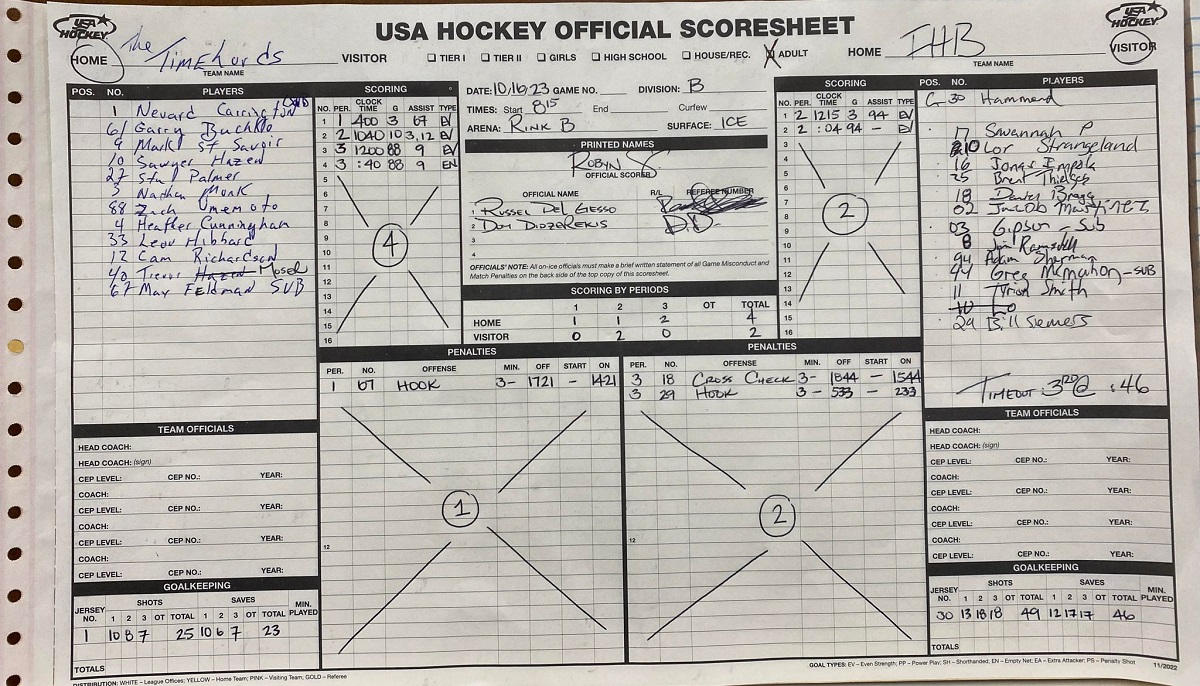 USA HOCKEY
USA HOCKEY OFFICIAL SCORESHEET
USA HOCKEY
HOME The TimeLords VISITOR
TEAM NAME
☐ TIER I ☐ TIER II ☐ GIRLS ☐ HIGH SCHOOL ☐ HOUSE/REC. X ADULT
HOME IHB VISITOR
TEAM NAME
POS. NO. PLAYERS
1 Nevard Carrington
61 Garry Buchko
9 Mark St Savoir
10 Sawyer Hazen
27 Stu Palmer
3 Nathan Monk
88 Zach Umemoto
4 Heather Cunningham
33 Leov Hibbard
12 Cam Richardson
40 Trevor Hazen Mosel
67 Max Feldman SUB
SCORING
NO. PER. CLOCK TIME G ASSIST TYPE
1 1 400 3 67 EV
2 2 1040 10 3,12 EV
3 3 1200 88 9 EV
4 3 :40 88 9 EN
5
6
7
8
9
10
11
12
13
14
15
16
4
DATE: 10/16/23 GAME NO. DIVISION: B
TIMES: Start 8:15 End Curfew
ARENA: RINK B SURFACE: ICE
PRINTED NAMES
ROBYN S
OFFICIAL SCORER
OFFICIAL NAME R/L REFEREE NUMBER
1 RUSSEL DEL GESSO
2 DOM DIOZEREKIS D.D.
3
4
OFFICIALS' NOTE: All on-ice officials must make a brief written statement of all Game Misconduct and
Match Penalties on the back side of the top copy of this scoresheet.
SCORING BY PERIODS
1 2 3 OT TOTAL
HOME 1 1 2 4
VISITOR 0 2 0 2
SCORING
NO. PER. CLOCK TIME G ASSIST TYPE
1 2 1215 3 94 EV
2 2 :04 94 – EV
3
4
5
6
7
8
9
10
11
12
13
14
15
16
2
POS. NO. PLAYERS
G 30 Hammond
17 Savannah P
10 Lor Strangeland
16 Jonas Empola
25 Brent Thielges
18 Daniel Bragg
02 Jacob Martinez
03 Gipson - Sub
8 Jim Ramsdell
94 Adam Sherman
44 Greg McMahon - SUB
11 Tyrion Smith
29 Bill Siemers
TIMEOUT 3RD @ :46
PENALTIES
PER. NO. OFFENSE MIN. OFF START ON
1 67 HOOK 3- 1721 – 1421
12
1
PENALTIES
PER. NO. OFFENSE MIN. OFF START ON
3 18 CROSS CHECK 3- 1844 – 1544
3 29 HOOK 3- 533 – 233
12
2
TEAM OFFICIALS
HEAD COACH:
HEAD COACH: (sign)
CEP LEVEL: CEP NO.: YEAR:
COACH:
CEP LEVEL: CEP NO.: YEAR:
COACH:
CEP LEVEL: CEP NO.: YEAR:
COACH:
CEP LEVEL: CEP NO.: YEAR:
GOALKEEPING
JERSEY NO. SHOTS 1 2 3 OT TOTAL SAVES 1 2 3 OT TOTAL MIN. PLAYED
1 10 8 7 25 10 6 7 23
TOTALS
TEAM OFFICIALS
HEAD COACH:
HEAD COACH: (sign)
CEP LEVEL: CEP NO.: YEAR:
COACH:
CEP LEVEL: CEP NO.: YEAR:
COACH:
CEP LEVEL: CEP NO.: YEAR:
COACH:
CEP LEVEL: CEP NO.: YEAR:
GOALKEEPING
JERSEY NO. SHOTS 1 2 3 OT TOTAL SAVES 1 2 3 OT TOTAL MIN. PLAYED
30 13 18 18 49 12 17 17 46
TOTALS
GOAL TYPES: EV – Even Strength; PP – Power Play; SH – Shorthanded; EN – Empty Net; EA – Extra Attacker; PS – Penalty Shot 11/2022
DISTRIBUTION: WHITE – League Offices; YELLOW – Home Team; PINK – Visiting Team; GOLD – Referee